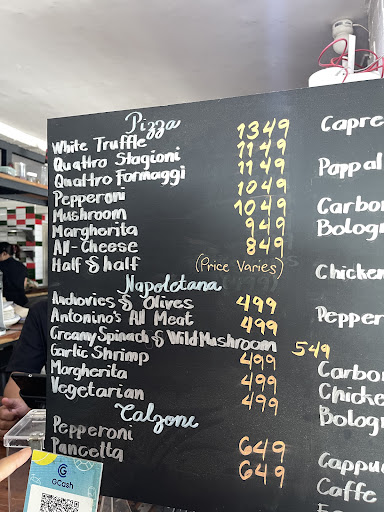 Pizza
White Truffle 1349
Quattro Stagioni 1149
Quattro Formaggi 1149
Pepperoni 1049
Mushroom 1049
Margherita 949
All-Cheese 849
Half & half (Price Varies)
Napoletana
Anchovies & Olives 499
Antonino's All Meat 499
Creamy Spinach & Wild Mushroom 549
Garlic Shrimp 499
Margherita 499
Vegetarian 499
Calzone
Pepperoni 649
Pancetta 649
Capre
Pappal
Carbon
Bologn
Chicken
Pepper
Carbon
Chicke
Bologn
Cappu
Caffe
GCash